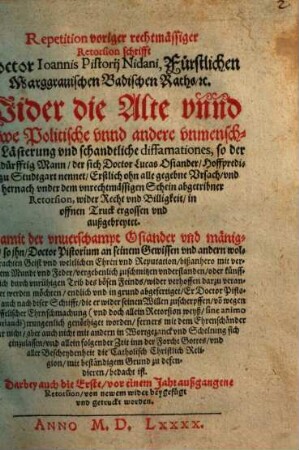 2
Repetition voriger rechtmässiger
Retorsion schrifft
octor Ioannis Pistorij Nidani, Fürstlichen
Marggrauischen Badischen Raths/ꝛc.
Wider die Alte vnnd
we Politische vnnd andere vnmensch-
Lästerung vnd schandtliche diffamationes, so der
dürfftig Mann/ der sich Doctor Lucas Osiander/ Hoffpredi-
zu Studtgart nennet/ Erstlich ohn alle gegebne Vrsach/ vnd
hernach vnder dem vnrechtmässigen Schein abgetribner
Retorsion, wider Recht vnd Billigkeit/ in
offnen Truck ergossen vnd
außgebreytet.
amit der vnuerschampt Osiander vnd mänig-
so ihn/ Doctor Pistorium an seinem Gewissen vnd andern wol-
brachten Geist vnd weltlichen Ehren vnd Reputation/ bißanhero mit ver-
em Munde vnd Feder/ vergebenlich zuschmitzen vnderstanden/ oder künff-
ich durch vnrühigen Trib des bösen Feinds/ wider verhoffen darzu veran-
er werden möchten/ endlich vnd in grund abgefertiget/ Er Doctor Pisto-
auch nach diser Schrifft/ die er wider seinen Willen
Ehrnschmachung (vnd doch allein Retorsion weyß/ sine animo
genöttiget worden/ ferners mit dem Ehrenschänder
nicht/ aber auch nicht mit andern in Wortgezänck vnd Schelmung sich
einzulassen/ vnd allein folgender Zeit inn der Forcht Gottes/ vnd
aller Bescheydenheit die Catholisch Christlich Reli-
gion/ mit beständigem Grund zu defen-
dieren/ bedacht ist.
Darbey auch die Erste/ vor einem Jahr außgangene
Retorsion/ von newem wider beygefügt
vnd getruckt worden.
ANNO M. D. LXXXX.